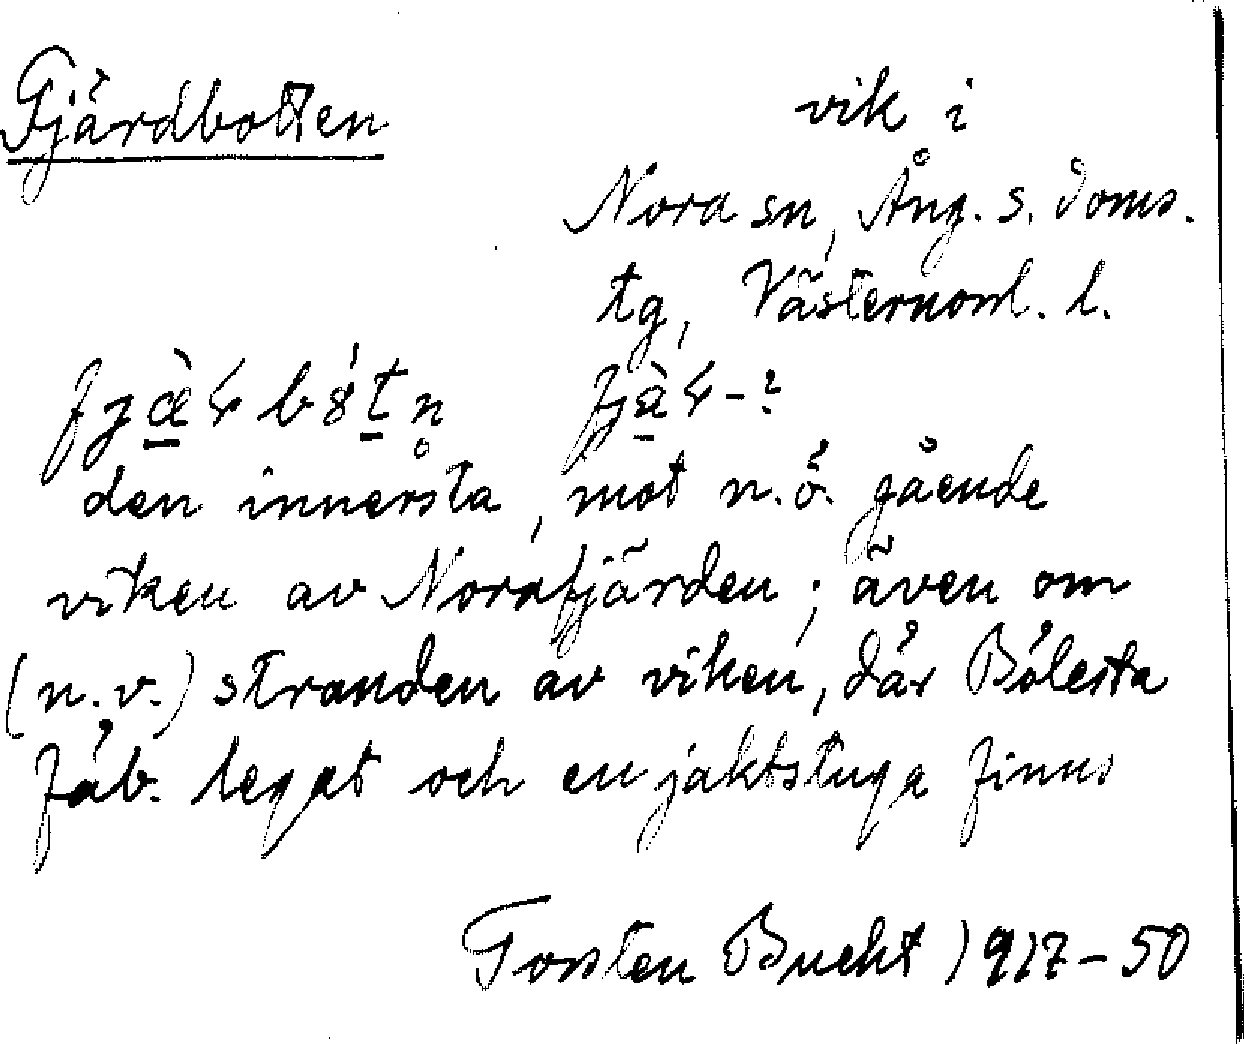 Fjärdbotten vik i
Nora sn, Ång. s. doms.
tg, Västernorrl. l.
den innersta, mot n.ö. gående
viken av Norafjärden; även om
(n.v.) stranden av viken, där Bölesta
fäb. legat och en jaktstuga finns
Torsten Bucht 1917-50